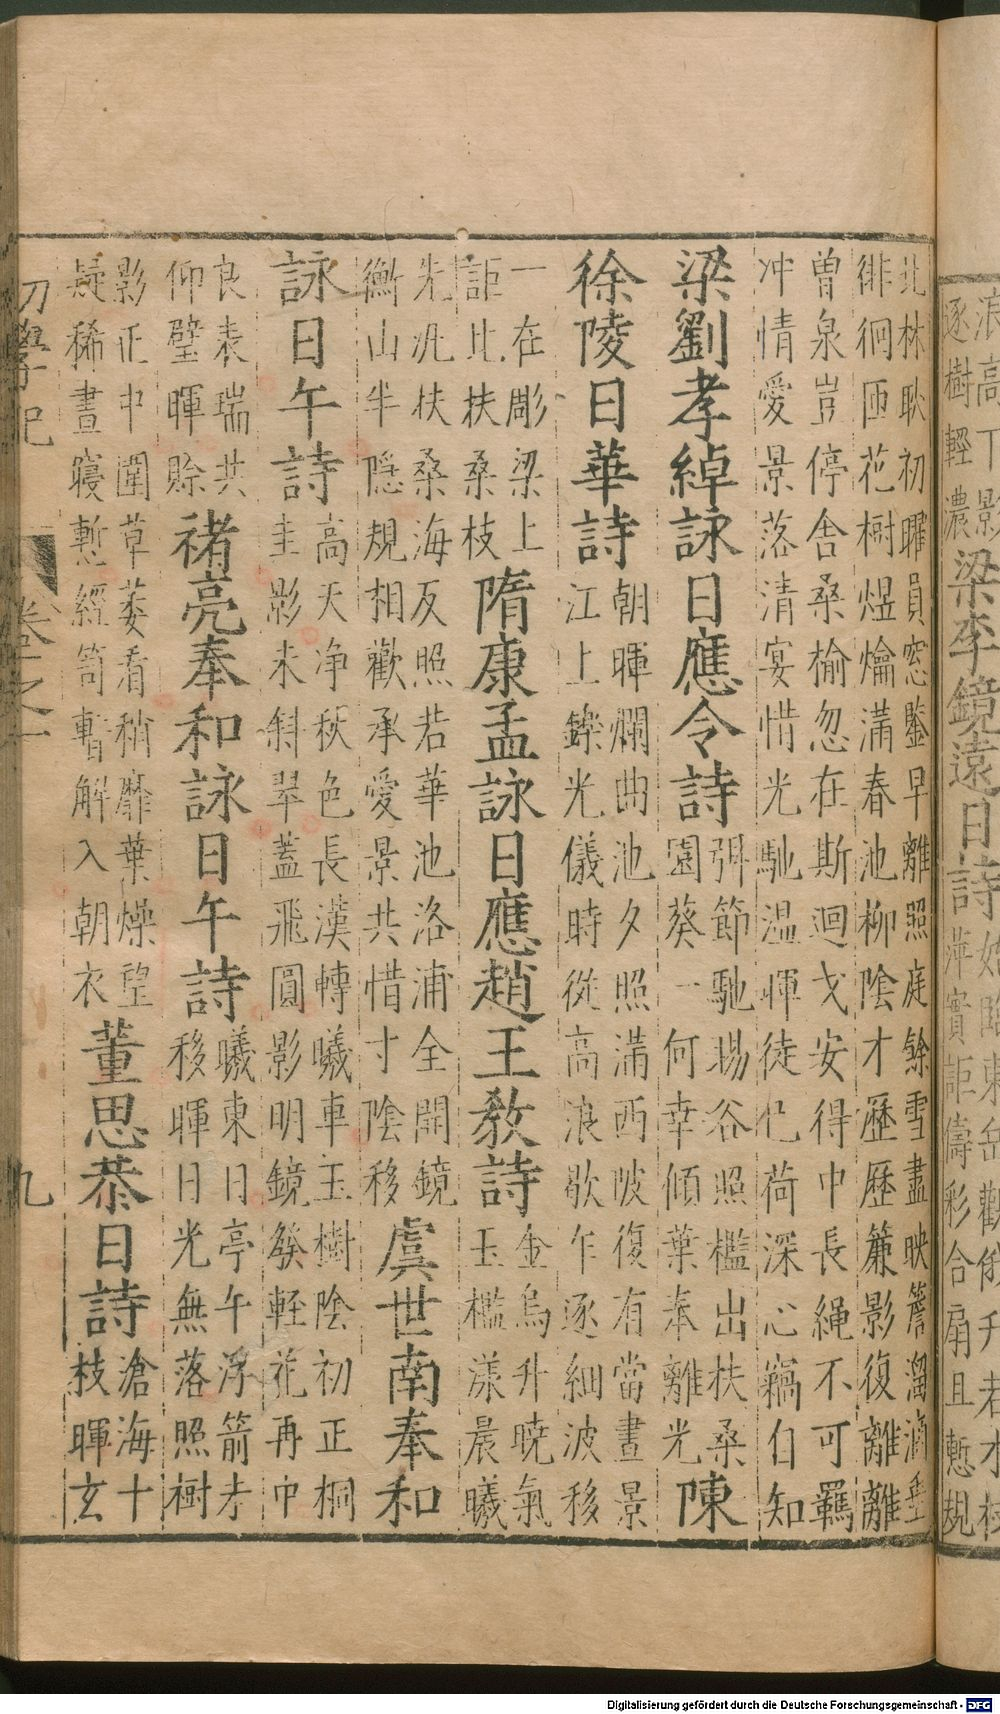 浪高下影
逐樹輕濃
梁李鏡遠日詩
始臨東岳觀俄升若木枝
萍實詎儔彩合扇且慙規
北林耿初曜員窓鑒早離照庭餘雪盡映簷溜滴垂
徘徊匝花樹煜爚滿春池柳陰才歷歷簾影復離離
曾泉豈停舍桑榆忽在斯迴戈安得中長繩不可羈
冲情愛景落清宴惜光馳温暉徒已荷深心竊自知
梁劉孝綽詠日應令詩
弭節馳暘谷照檻出扶桑
園葵一何幸傾葉奉離光
陳
徐陵日華詩
朝暉爛曲池夕照滿西陂復有當晝景
江上鑠光儀時從高浪歇乍逐細波移
一在彫梁上
詎比扶桑枝
隋康孟詠日應趙王敎詩
金烏升曉氣
玉檻漾晨曦
先汎扶桑海反照若華池洛浦全開鏡
衡山半隱規相歡承愛景共惜寸陰移
虞世南奉和
詠日午詩
高天净秋色長漢轉曦車玉樹陰初正桐
圭影未斜翠蓋飛圓影明鏡發輕花再中
良表瑞共
仰璧暉賖
禇亮奉和詠日午詩
曦東日亭午浮箭未
移暉日光無落照樹
影正中圍草萎看稍靡葉燥望
疑稀晝寢慙經笥暫解入朝衣
董思恭日詩
滄海十
枝暉玄
初學記 卷之一 九
Digitalisierung gefördert durch die Deutsche Forschungsgemeinschaft - DFG